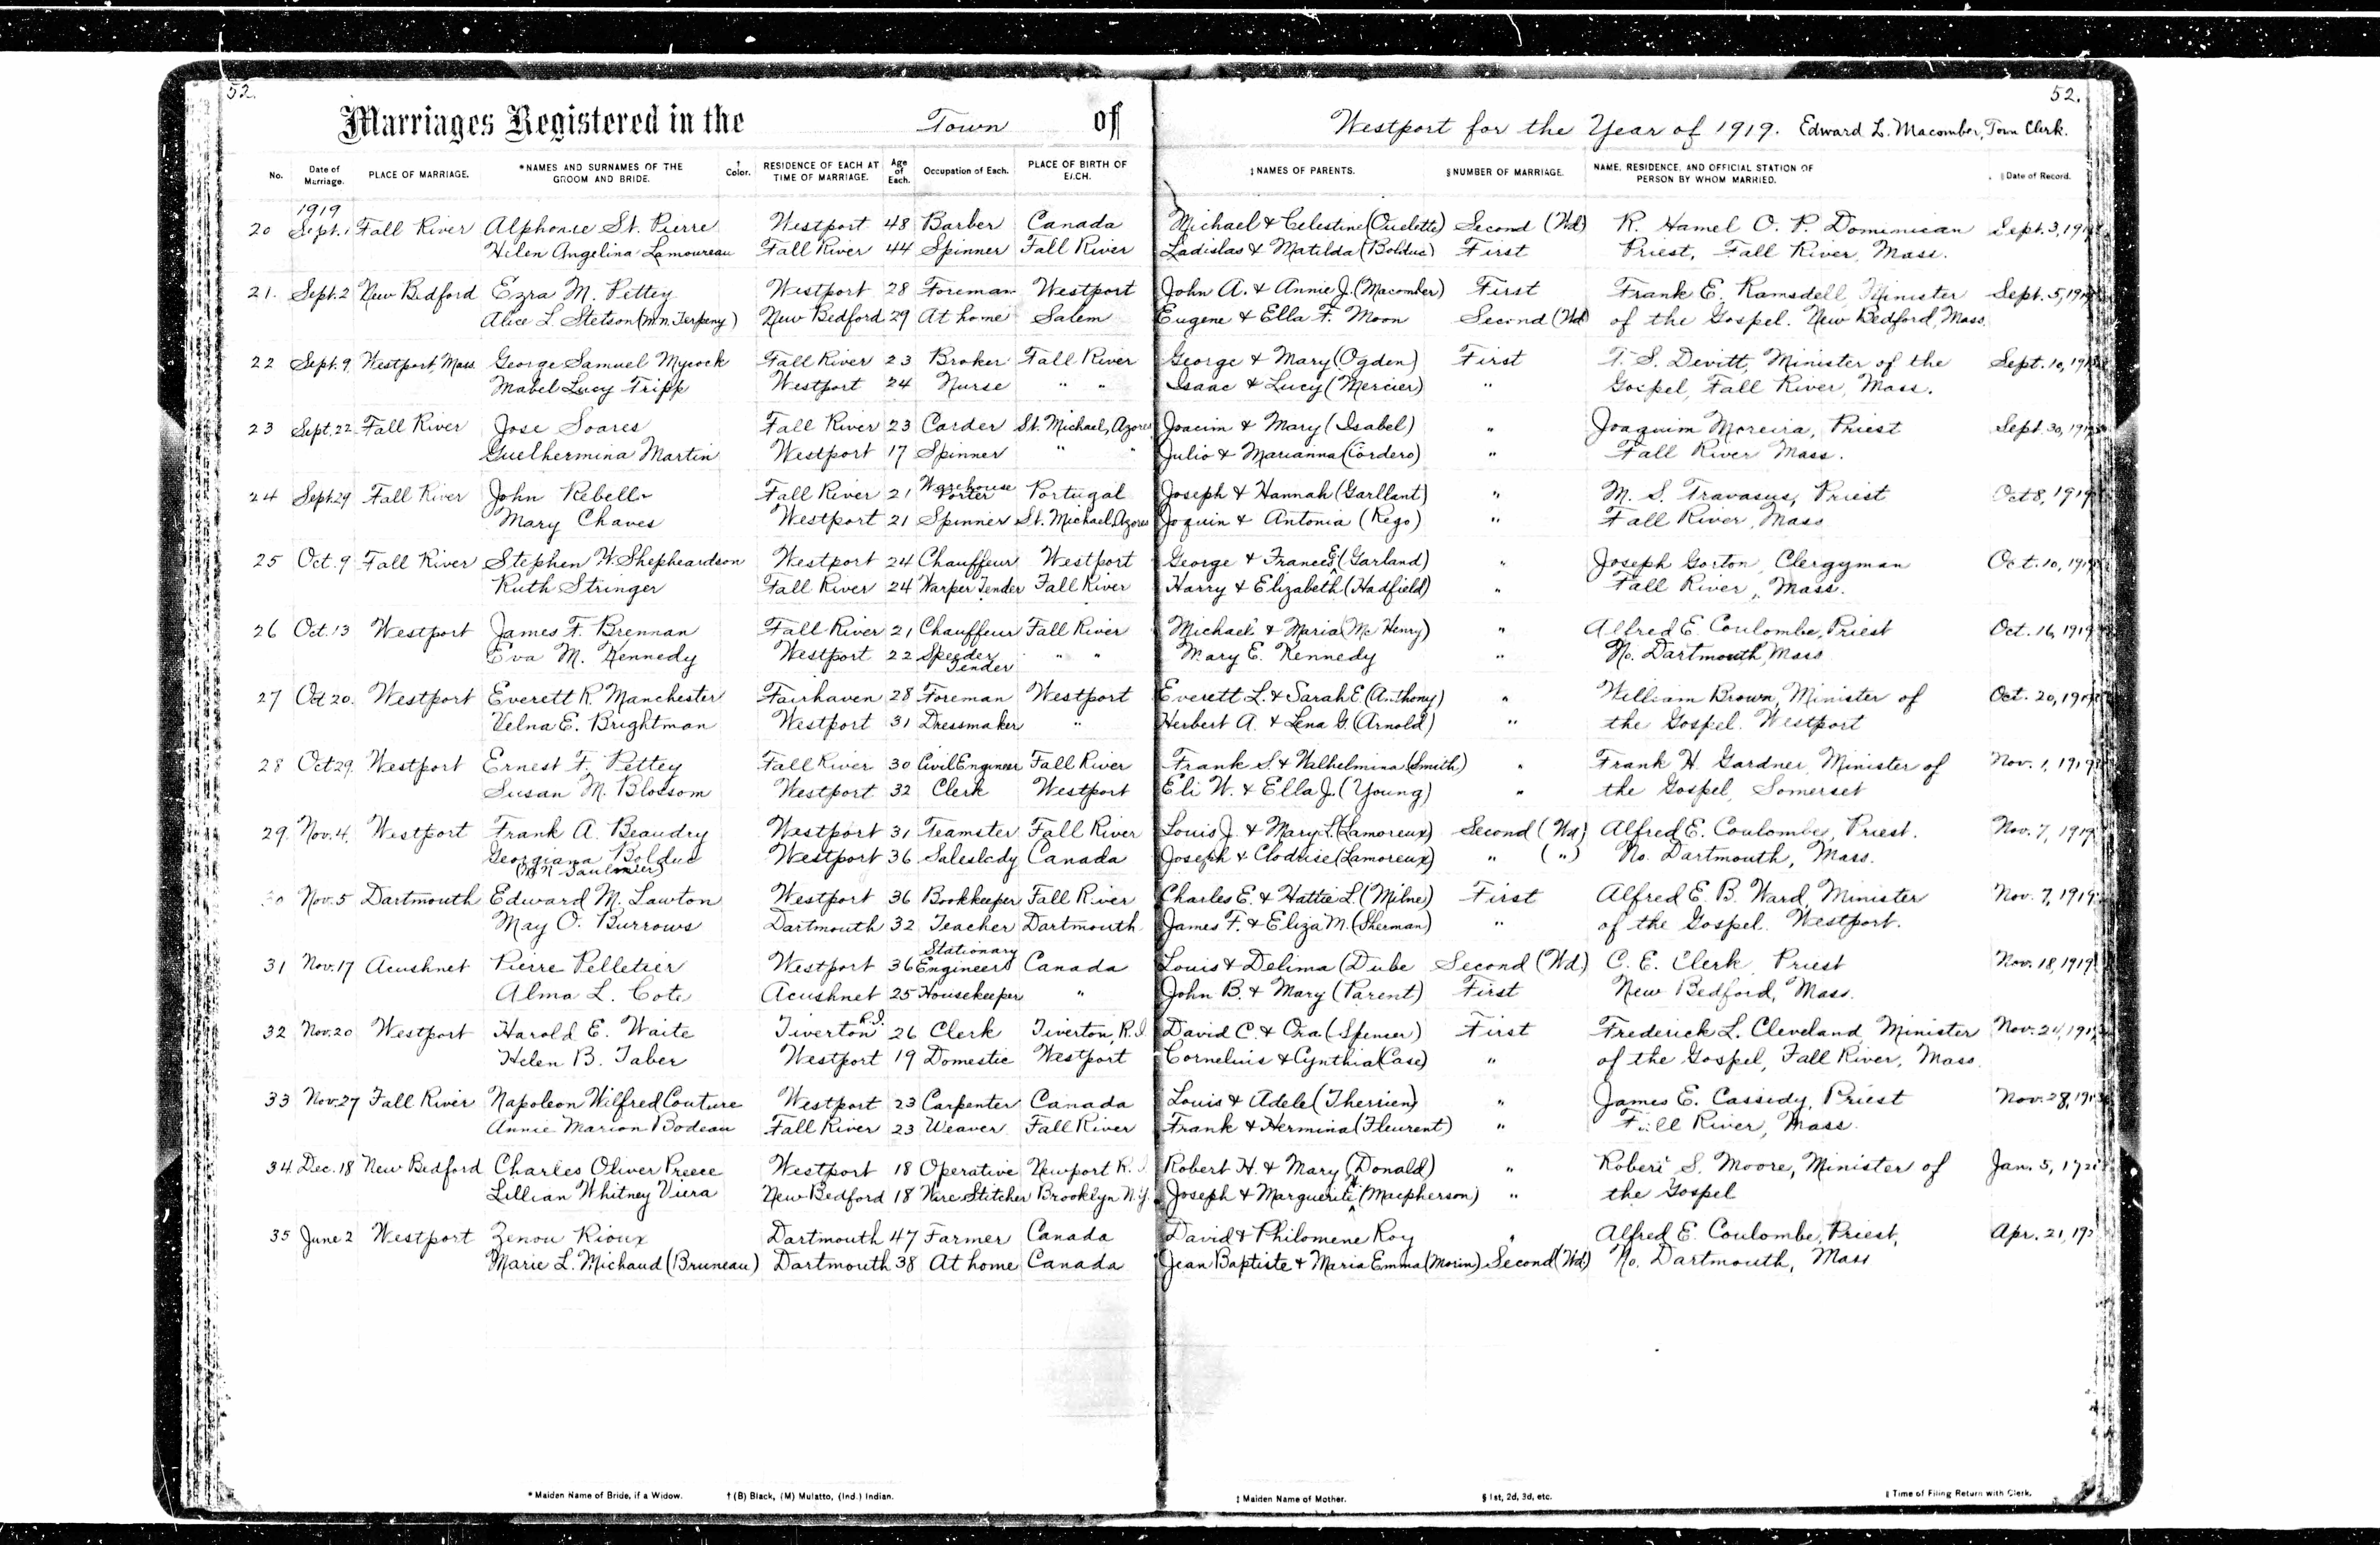 52.
52.
Marriages Registered in the Town of Westport for the Year of 1919. Edward L. Macomber, Town Clerk.
No. Date of Marriage. PLACE OF MARRIAGE. *NAMES AND SURNAMES OF THE GROOM AND BRIDE. † Color. RESIDENCE OF EACH AT TIME OF MARRIAGE. Age of Each. Occupation of Each. PLACE OF BIRTH OF EACH. ‡NAMES OF PARENTS. §NUMBER OF MARRIAGE. NAME, RESIDENCE, AND OFFICIAL STATION OF PERSON BY WHOM MARRIED. ‖Date of Record.
1919
20 Sept. 1 Fall River Alphonse St. Pierre Westport 48 Barber Canada Michael & Celestine (Ouelette) Second (Wd) R. Hamel O. P. Dominican Sept. 3, 1919
Helen Angelina Lamoureau Fall River 44 Spinner Fall River Ladislas & Matilda (Bolduc) First Priest, Fall River, Mass.
21. Sept. 2 New Bedford Ezra M. Pettey Westport 28 Foreman Westport John A. & Annie J. (Macomber) First Frank E. Ramsdell, Minister Sept. 5, 1919
Alice L. Stetson (m.n. Terpeny) New Bedford 29 At home Salem Eugene & Ella F. Moon Second (Wd) of the Gospel. New Bedford, Mass.
22 Sept. 9 Westport, Mass. George Samuel Mycock Fall River 23 Broker Fall River George & Mary (Ogden) First T. S. Devitt, Minister of the Sept. 10, 1919
Mabel Lucy Tripp Westport 24 Nurse " " Isaac & Lucy (Mercier) " Gospel, Fall River, Mass.
23 Sept. 22 Fall River Jose Soares Fall River 23 Carder St. Michael, Azores Joacim & Mary (Isabel) " Joaquim Moreira, Priest Sept. 30, 1919
Guelhermina Martin Westport 17 Spinner " " Julio & Marianna (Cordero) " Fall River Mass.
24 Sept. 29 Fall River John Rebello Fall River 21 Warehouse Porter Portugal Joseph & Hannah (Garllant) " M. S. Travasus, Priest Oct 8, 1919
Mary Chaves Westport 21 Spinner St. Michael, Azores Joquin & Antonia (Rego) " Fall River, Mass
25 Oct. 9 Fall River Stephen W. Shepheardson Westport 24 Chauffeur Westport George & Frances E. (Garland) " Joseph Gorton, Clergyman Oct. 10, 1919
Ruth Stringer Fall River 24 Warper Tender Fall River Harry & Elizabeth (Hadfield) " Fall River, Mass.
26 Oct. 13 Westport James F. Brennan Fall River 21 Chauffeur Fall River Michael & Maria (Mc Henry) " Alfred E. Coulombe, Priest Oct. 16, 1919
Eva M. Kennedy Westport 22 Speeder Tender " " Mary E. Kennedy " No. Dartmouth, Mass
27 Oct 20. Westport Everett R. Manchester Fairhaven 28 Foreman Westport Everett L. & Sarah E. (Anthony) " William Brown, Minister of Oct. 20, 1919
Velna E. Brightman Westport 31 Dressmaker " Herbert A. & Lena G. (Arnold) " the Gospel. Westport
28 Oct 29. Westport Ernest F. Pettey Fall River 30 Civil Engineer Fall River Frank S & Walhelmina (Smith) " Frank H. Gardner, Minister of Nov. 1, 1919
Susan M. Blossom Westport 32 Clerk Westport Eli W. & Ella J. (Young) " the Gospel, Somerset
29. Nov. 4. Westport Frank A. Beaudry Westport 31 Teamster Fall River Louis J. & Mary L. (Lamoreux) Second (Wd) Alfred E. Coulombe, Priest. Nov. 7, 1919
Georgiana Bolduc Westport 36 Saleslady Canada Joseph & Clodrise (Lamoreux) " (") No. Dartmouth, Mass.
(M.N. Saulnier)
30 Nov. 5 Dartmouth Edward M. Lawton Westport 36 Bookkeeper Fall River Charles E. & Hattie L. (Milne) First Alfred E. B. Ward, Minister Nov. 7, 1919
May O. Burrows Dartmouth 32 Teacher Dartmouth James F. & Eliza M. (Sherman) " of the Gospel. Westport.
31 Nov. 17 Acushnet Pierre Pelletier Westport 36 Stationary Engineer Canada Louis & Delima (Dube Second (Wd) C. E. Clerk, Priest Nov. 18, 1919
Alma L. Cote Acushnet 25 Housekeeper " John B. & Mary (Parent) First New Bedford, Mass.
32 Nov. 20 Westport Harold E. Waite Tiverton R.I. 26 Clerk Tiverton, R.I. David C. & Ora (Spencer) First Frederick L. Cleveland, Minister Nov. 24, 191
Helen B. Taber Westport 19 Domestic Westport Cornelius & Cynthia (Case) " of the Gospel, Fall River, Mass.
33 Nov. 27 Fall River Napoleon Wilfred Couture Westport 23 Carpenter Canada Louis & Adele (Therrien) " James E. Cassidy, Priest Nov. 28, 191
Annie Marion Bodeau Fall River 23 Weaver Fall River Frank & Hermina (Fleurent) " Fall River, Mass.
34 Dec. 18 New Bedford Charles Oliver Preece Westport 18 Operative Newport R. I. Robert H. & Mary (Donald) " Robert S. Moore, Minister of Jan. 5, 192
Lillian Whitney Viera New Bedford 18 Wire Stitcher Brooklyn N.Y. Joseph & Marguerite (Macpherson) " the Gospel
35 June 2 Westport Zenou Rioux Dartmouth 47 Farmer Canada David & Philomene Roy " Alfred E. Coulombe, Priest, Apr. 21, 192
Marie L. Michaud (Bruneau) Dartmouth 38 At home Canada Jean Baptiste & Maria Emma (Morin) Second (Wd.) No. Dartmouth, Mass
* Maiden Name of Bride, if a Widow. † (B) Black, (M) Mulatto, (Ind.) Indian. ‡ Maiden Name of Mother. § 1st, 2d, 3d, etc. ‖ Time of Filing Return with Clerk.